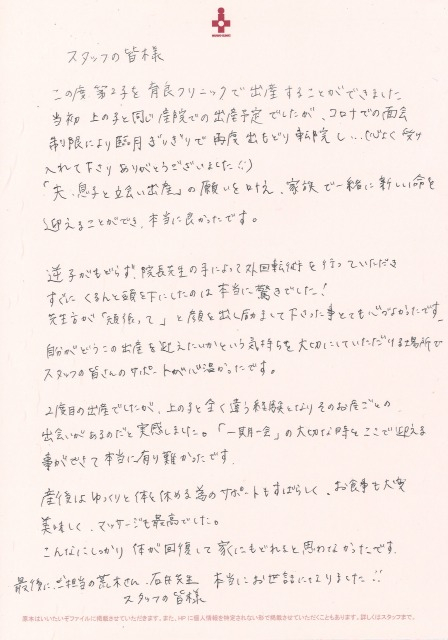 スタッフの皆様
この度 第2子を 育良クリニックで出産することができました
当初 上の子と同じ産院での出産予定でしたが、コロナでの面会
制限により臨月ぎりぎりで再度出もどり転院し…(心よく受け
入れて下さりありがとうございました!!)
「夫、息子と立会い出産」の願いを叶え、家族で一緒に新しい命を
迎えることができ、本当に良かったです。
逆子がもどらず、院長先生の手によって外回転術を行っていただき
すぐに くるんと頭を下にしたのは本当に驚きでした!
先生方が「頑張って」と顔を出し励まして下さった事とても心づよかったです
自分がどうこの出産を迎えたいかという気持ちを大切にしていただける場所で
スタッフの皆さんのサポートが心温かったです。
2度目の出産でしたが、上の子と全く違う経験となりそのお産ごとの
出会いがあるのだと実感しました。「一期一会」の大切な時をここで迎える
事ができて本当に有り難かったです.
産後はゆっくりと体を休める為のサポートもすばらしく、お食事も大変
美味しく、マッサージも最高でした。
こんなにしっかり体が回復して家にもどれると思わなかったです.
最後にご担当の荒木さん、石井先生 本当にお世話になりました!!
スタッフの皆様
原本はいいたいぞファイルに掲載させていただきます。また、HPに個人情報を特定されない形で掲載させていただくこともあります。詳しくはスタッフまで。